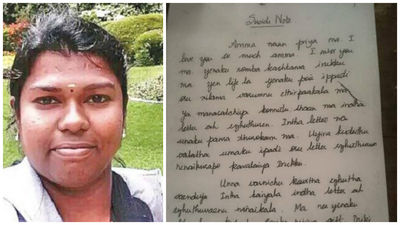 Suicide Note
Amma naan priya ma I
love you so much amma I miss you
ma yenaku romba kashtama irukku
ma yen life la yenaku ippadi
oru nilama varumnu ethirpaakala ma
ya manasatchiya konnutu thaan ma indha
letter ah ezhuthuren. Intha letter na
unaku
umaku ipadi oru letter ezhuthuven
nenaikurapo kavalaiya Irukku.
Unna varnichu kavitha ezhutha
vendiya Intha kaiyala indha letter ah
ezhuthuvaenu nenaikala. Ma nee yenaku